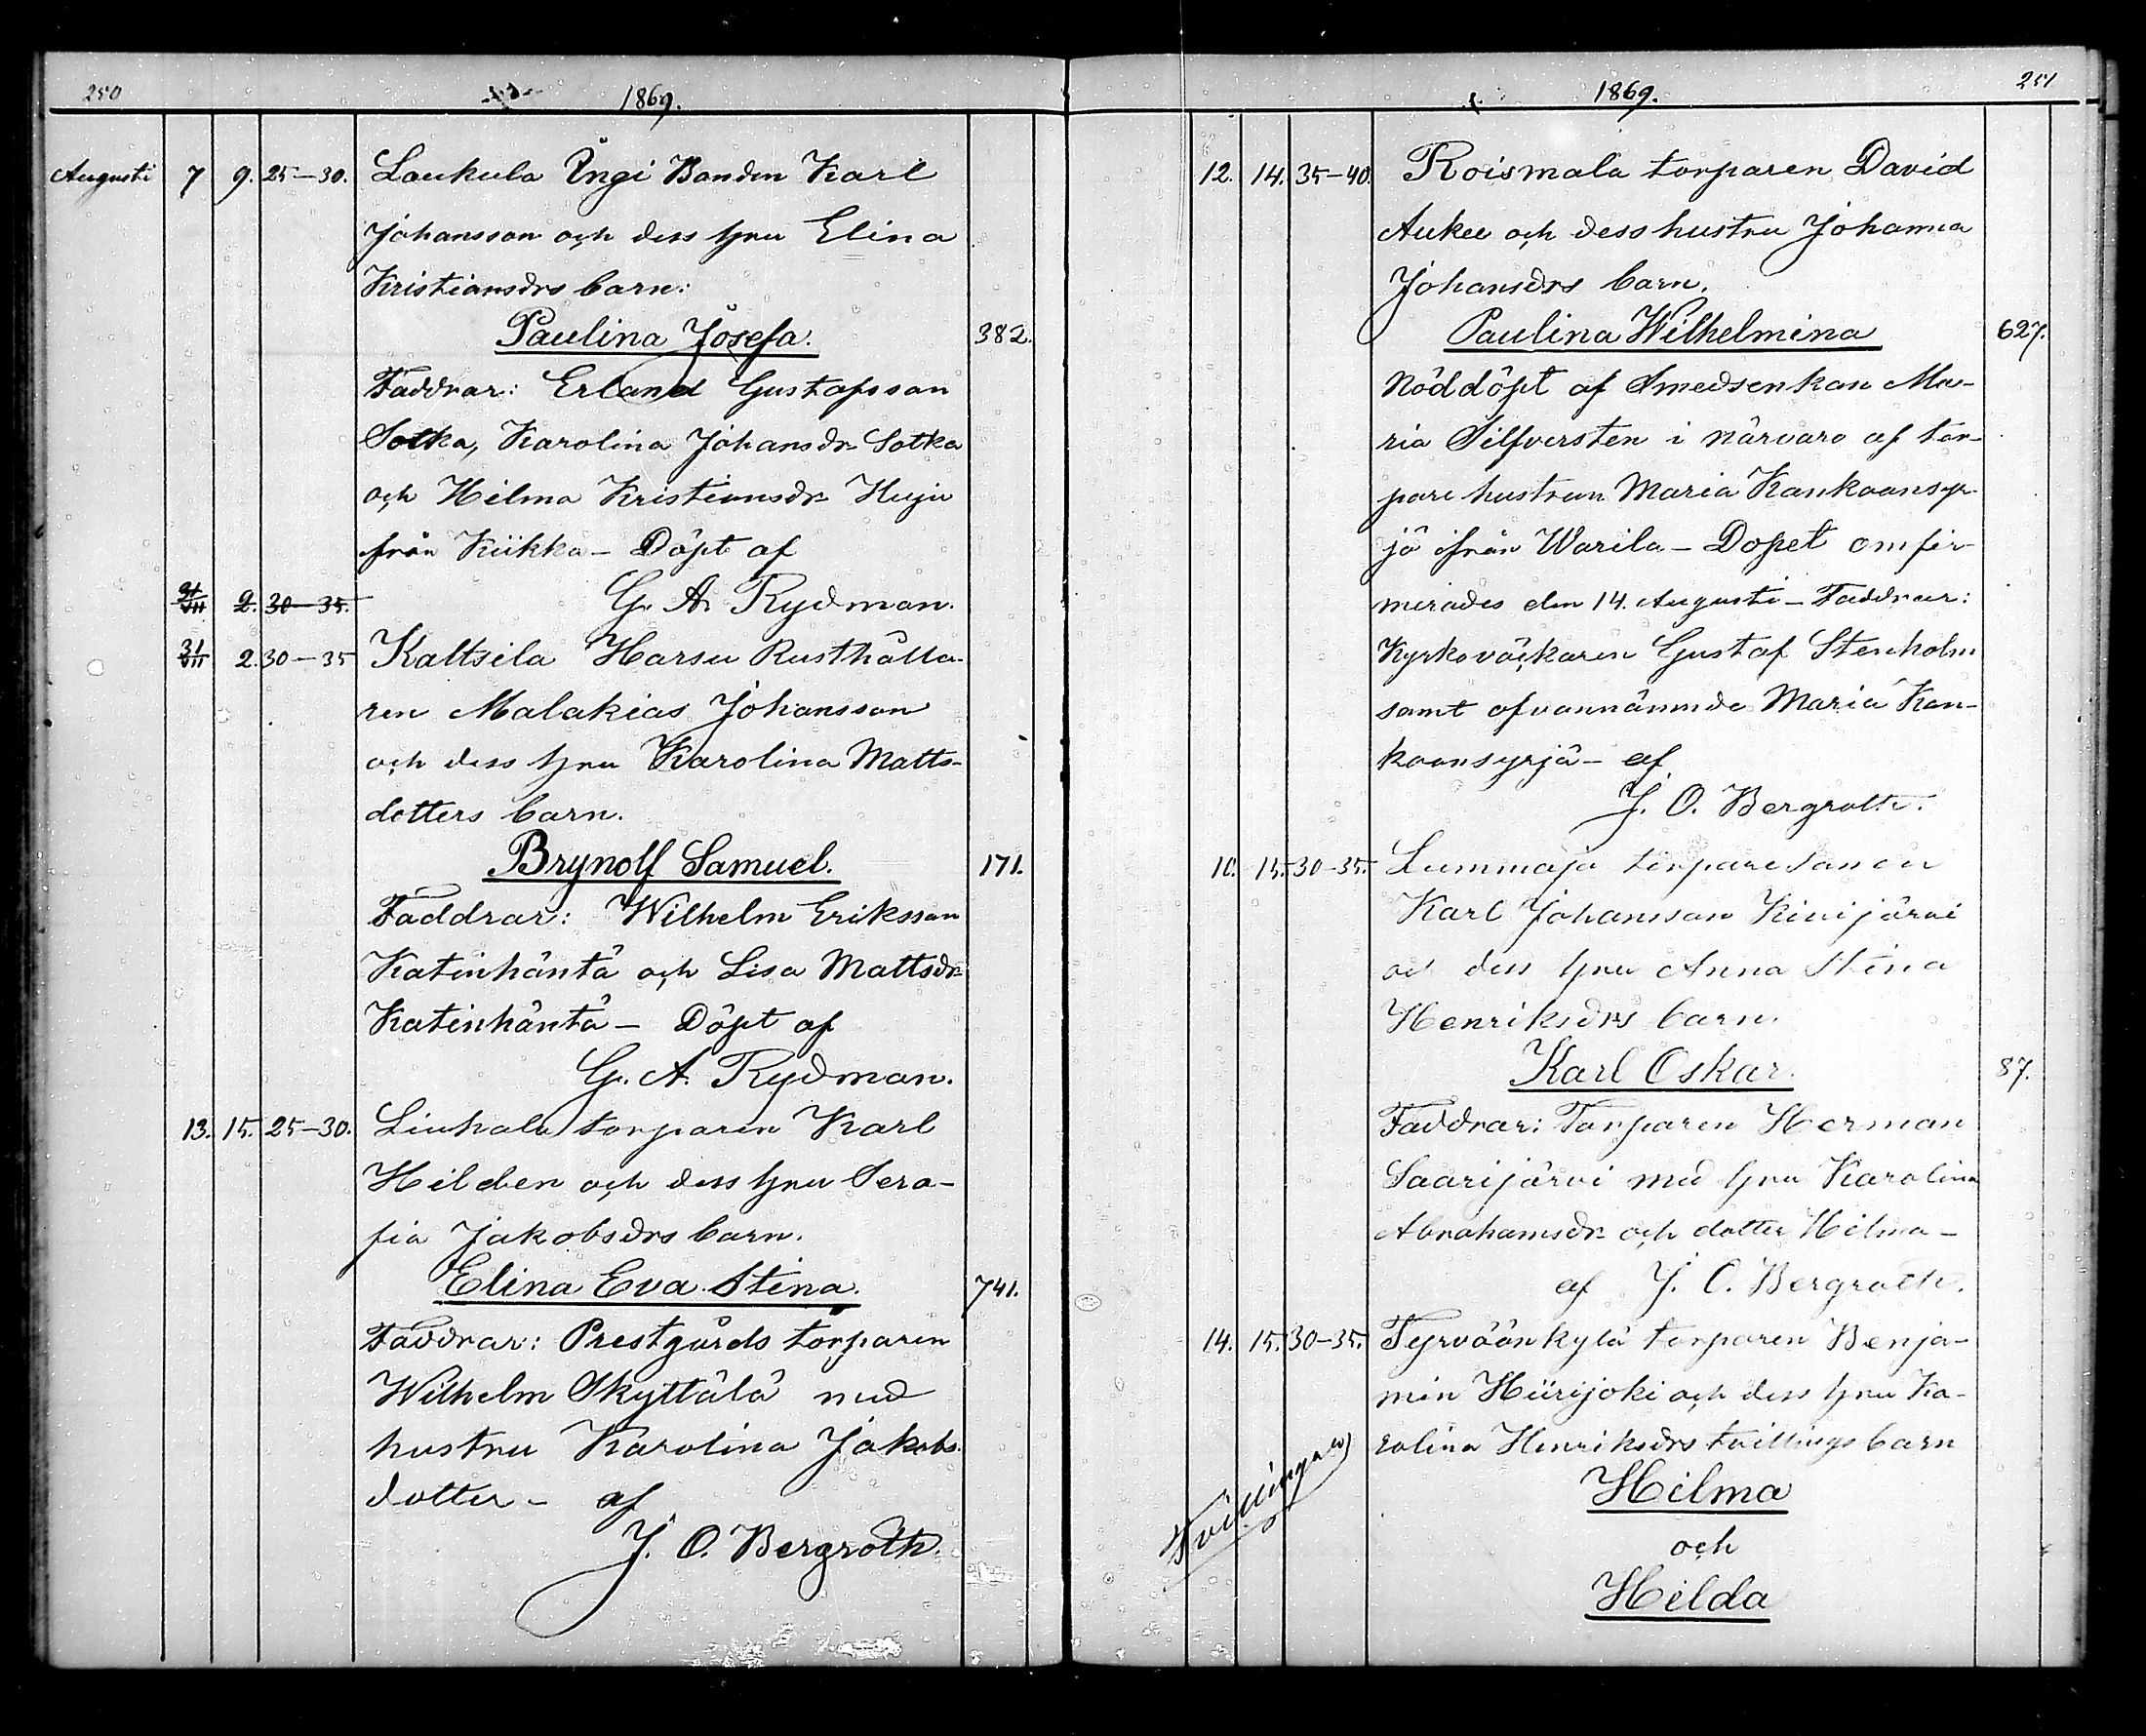 250
1869.
Augusti 7 9. 25–30. Laukula Ängi Bonden Karl
Johansson och dess hru Elina
Kristiansdrs barn:
Paulina Josefa. 382.
Faddrar: Erland Gustafsson
Sotka, Karolina Johansdr Sotka
och Hilma Kristiansdr Kuju
från Kiikka – Döpt af
31/VII 2. 30–35. G. A. Rydman.
31/VII 2. 30–35 Kaltsila Harsu Rusthålla-
ren Malakias Johansson
och dess hru Karolina Matts-
dotters barn.
Brynolf Samuel. 171.
Faddrar: Wilhelm Eriksson
Katinhäntä och Lisa Mattsdr
Katinhäntä – Döpt af
G. A. Rydman.
13. 15. 25–30. Liuhala torparen Karl
Hilden och dess hru Sera-
fia Jakobsdrs barn.
Elina Eva Stina. 741.
Faddrar: Prestgårds torparen
Wilhelm Skyttälä med
hustru Karolina Jakobs-
dotter – af
J. O. Bergroth.
1869.
251
12. 14. 35–40. Roismala torparen David
Aukee och dess hustru Johanna
Johansdrs barn.
Paulina Wilhelmina 627.
Nöddöpt af Smedsenkan Ma-
ria Silfversten i närvaro af tor-
pare hustrun Maria Kankaansyr-
jä ifrån Warila – Dopet omfir-
merades den 14. Augusti – Faddrar:
Kyrkoväckaren Gustaf Stenholm
samt ofvannämnda Maria Kan-
kaansyrjä – af
J. O. Bergroth.
10. 15. 30–35. Lummaja torparesonen
Karl Johansson Kivijärvi
och dess hru Anna Stina
Henriksdrs barn.
Karl Oskar. 87.
Faddrar: Torparen Herman
Saarijärvi med hru Karolina
Abrahamsdr och dotter Hilma –
af J. O. Bergroth.
14. 15. 30–35. Tyrväänkylä torparen Benja-
min Hiirijoki och dess hru Ka-
rolina Henriksdrs tvillings barn
Tvillingar
Hilma
och
Hilda